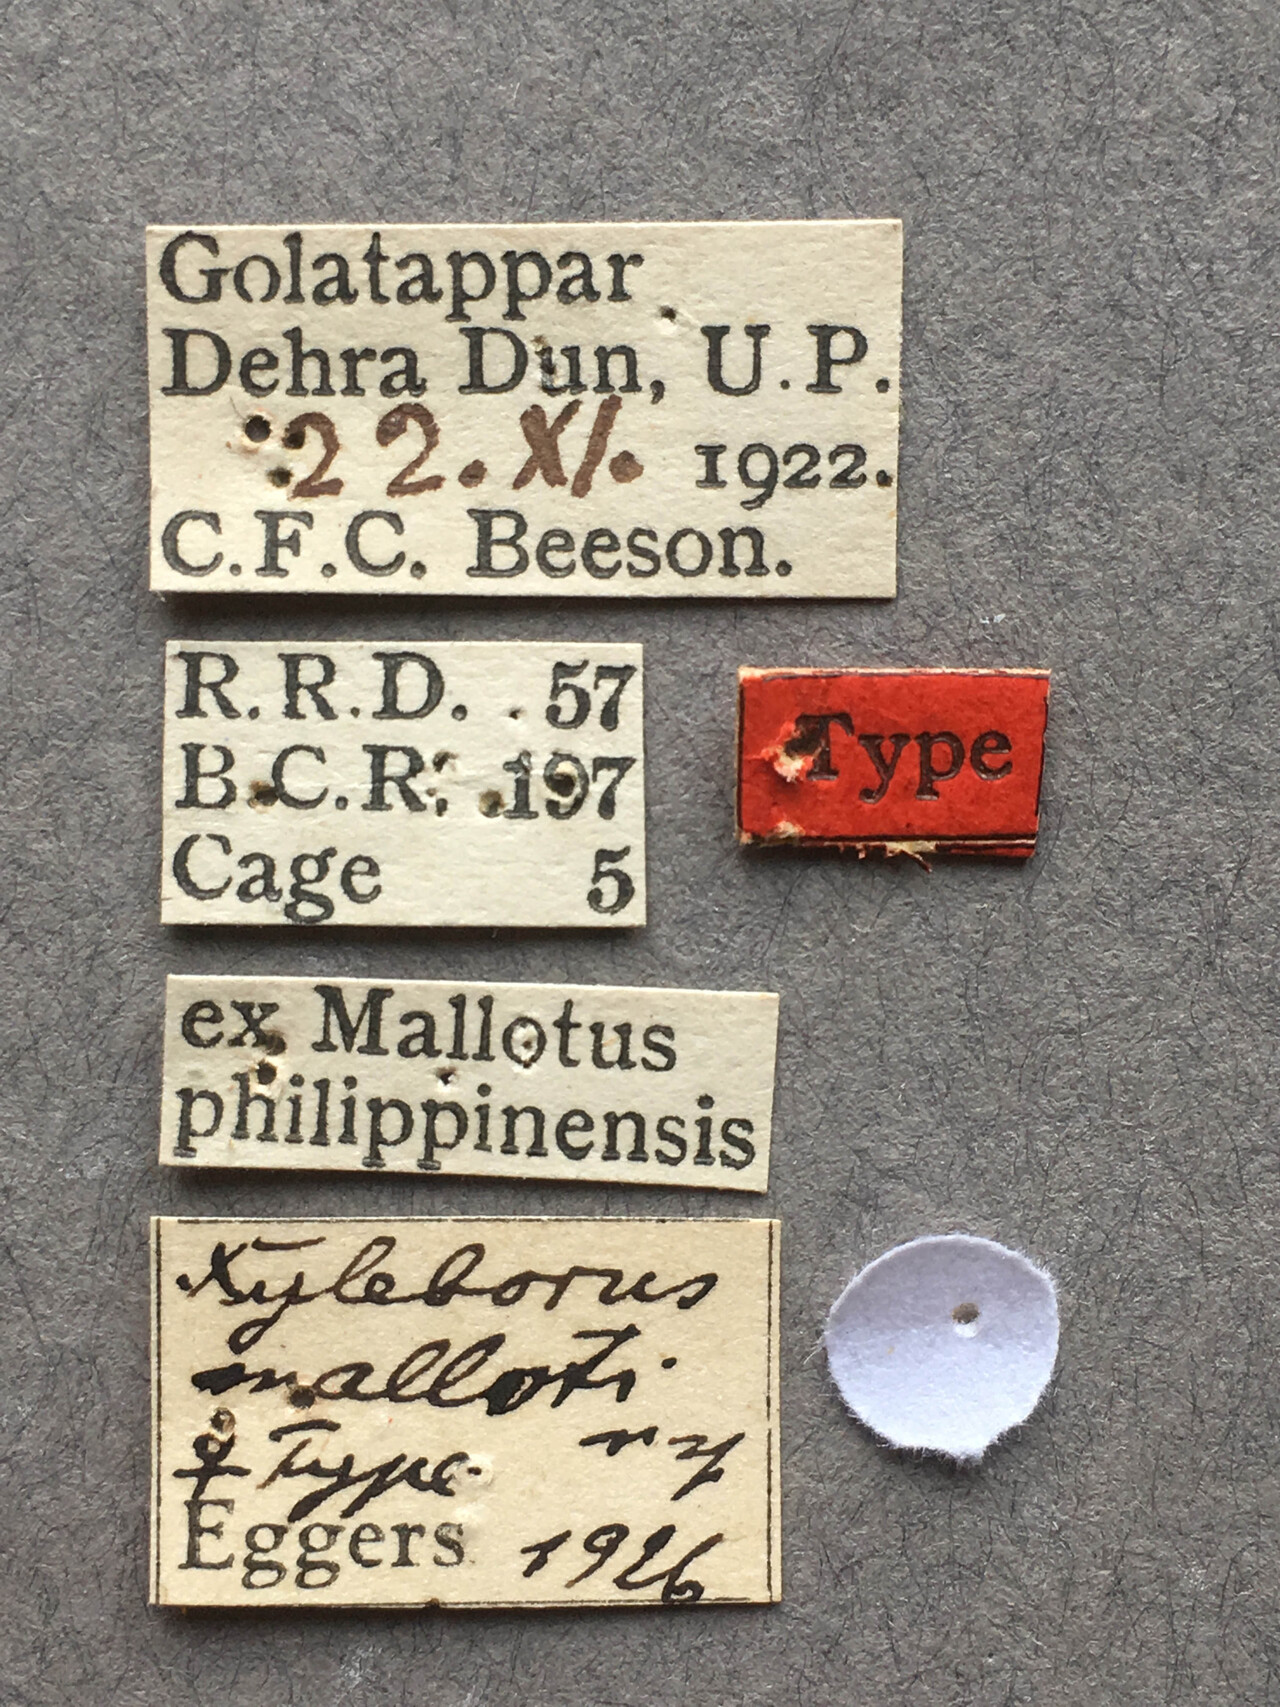 Golatappar
Dehra Dun, U.P.
22.XI. 1922.
C.F.C. Beeson.
R.R.D. 57
B.C.R. 197
Cage 5
Type
ex Mallotus
philippinensis
Xyleborus
malloti
♀ Type
Eggers 1926